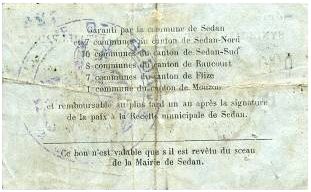 Garanti par la commune de Sedan
7 communes du canton de Sedan-Nord
10 communes du canton de Sedan-Sud
8 communes du canton de Raucourt
7 communes du canton de Flize
1 commune du canton de Mouzon
et remboursable au plus tard un an après la signature
de la paix à la Recette municipale de Sedan.
Ce bon n'est valable que s'il est revêtu du sceau
de la Mairie de Sedan.